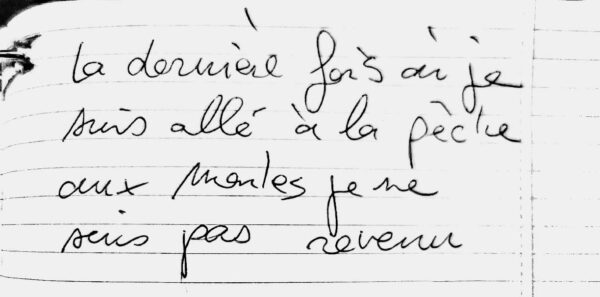 La dernière fois où je
suis allé à la pêche
aux moules je ne
suis pas revenu